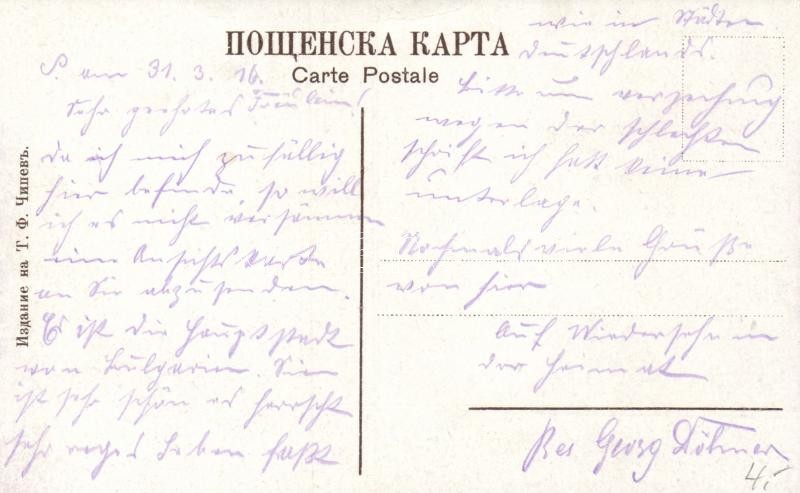 ПОЩЕНСКА КАРТА
Carte Postale
Издание на Т. Ф. Чипевъ.
S. am 31. 3. 16.
Sehr geehrtes Fräulein!
Da ich mich zufällig
hier befinde, so will
ich es nicht versäumen
eine Ansichtskarte
an Sie abzusenden.
Es ist die Hauptstadt
von Bulgarien. Sie
ist sehr schön es herrscht
sehr reges Leben faßt
wie in Städten
Deutschlands.
Bitte um verzeihung
wegen der schlechten
schrift ich hatt keine
unterlage.
Nochmals viele Grüße
von hier
Auf Wiedersehn in
der Heimat
Georg
4.-